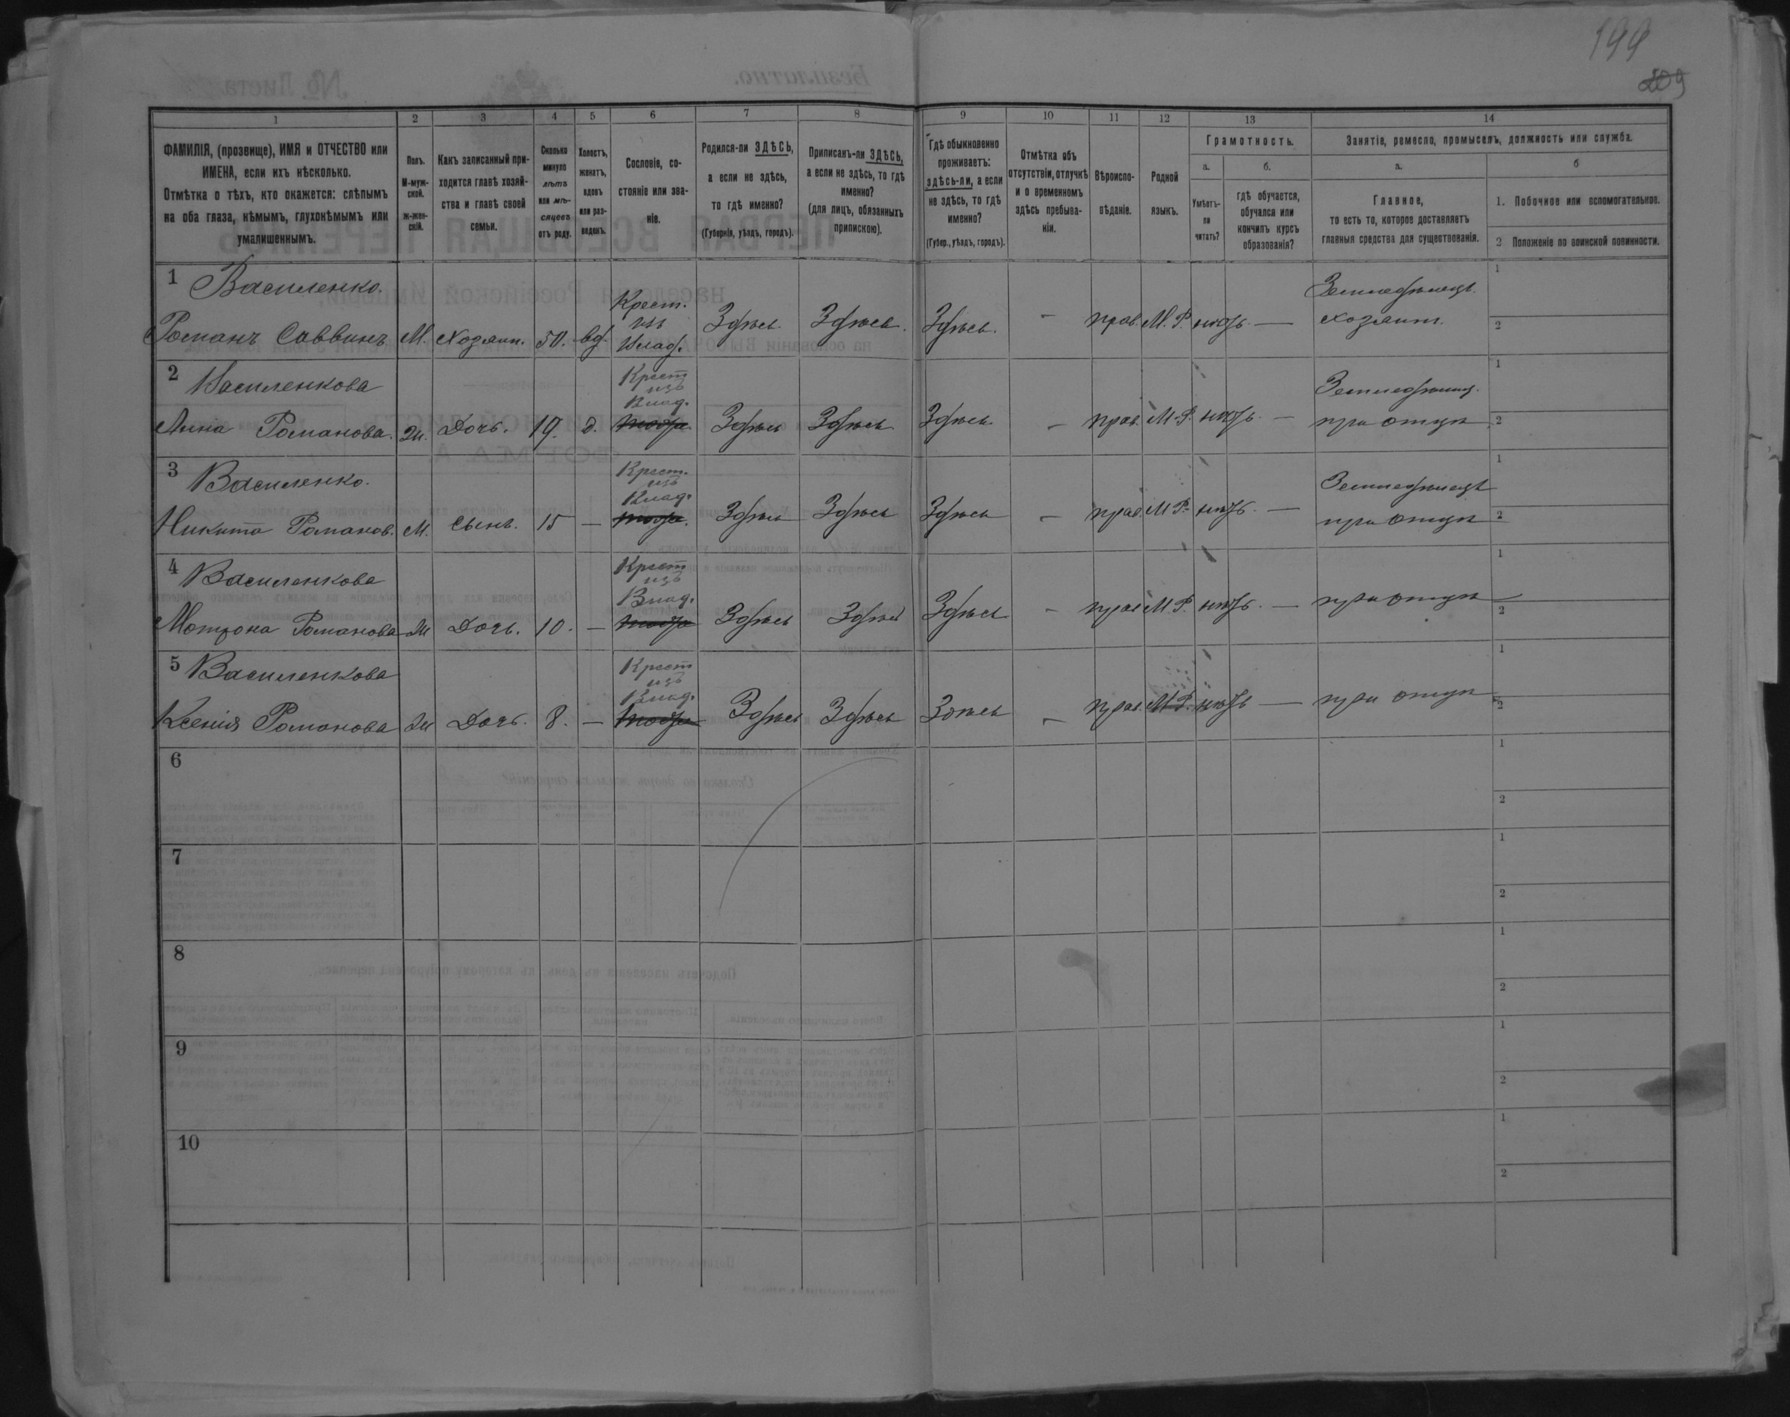 199
209
1 2 3 4 5 6 7 8 9 10 11 12 13 14
ФАМИЛІЯ, (прозвище), ИМЯ и ОТЧЕСТВО или
ИМЕНА, если ихъ нѣсколько.
Отмѣтка о тѣхъ, кто окажется: слѣпымъ
на оба глаза, нѣмымъ, глухонѣмымъ или
умалишеннымъ.
Полъ.
М-муж-
ской.
ж-жен-
скій.
Какъ записанный при-
ходится главѣ хозяй-
ства и главѣ своей
семьи.
Сколько
минуло
лѣтъ
или мѣ-
сяцевъ
отъ роду.
Холостъ,
женатъ,
вдовъ
или раз-
веденъ.
Сословіе, со-
стояніе или зва-
ніе.
Родился-ли ЗДѢСЬ,
а если не здѣсь,
то гдѣ именно?
(Губернія, уѣздъ, городъ).
Приписанъ-ли ЗДѢСЬ,
а если не здѣсь, то гдѣ
именно?
(для лицъ, обязанныхъ
припискою).
Гдѣ обыкновенно
проживаетъ:
здѣсь-ли, а если
не здѣсь, то гдѣ
именно?
(Губер., уѣздъ, городъ).
Отмѣтка объ
отсутствіи, отлучкѣ
и о временномъ
здѣсь пребыва-
ніи.
Вѣроиспо-
вѣданіе.
Родной
языкъ.
Грамотность.
а. б.
Умѣетъ-
ли
читать?
гдѣ обучается,
обучался или
кончилъ курсъ
образованія?
Занятіе, ремесло, промыселъ, должность или служба.
а. б
Главное,
то есть то, которое доставляетъ
главныя средства для существованія.
1. Побочное или вспомогательное.
2 Положеніе по воинской повинности.
1 Василенко. Крест. Земледѣлецъ 1
Романъ Саввинъ М. Хозяин. 50. вд. изъ Влад. Здѣсь. Здѣсь. Здѣсь. – прав. М.Р. нѣтъ — хозяинъ. 2
2 Василенкова Крест изъ Влад. Земледѣлец. 1
Анна Романова. Ж. Дочь. 19. д. Здѣсь Здѣсь Здѣсь. – прав. М.Р. нѣтъ. — при отцѣ 2
3 Василенко. Крест. изъ Влад. Земледѣлецъ 1
Никита Романов. М. Сынъ. 15 — Здѣсь Здѣсь Здѣсь – прав М.Р. нѣтъ. — при отцѣ 2
4 Василенкова Крест изъ Влад. 1
Мотрона Романова Ж Дочь. 10. — Здѣсь Здѣсь Здѣсь – прав М.Р. нѣтъ. — при отцѣ 2
5 Василенкова Крест изъ Влад. 1
Ксенія Романова Ж Дочь. 8. — Здѣсь Здѣсь Здѣсь – прав М.Р. нѣтъ — при отцѣ 2
6 1
2
7 1
2
8 1
2
9 1
2
10 1
2